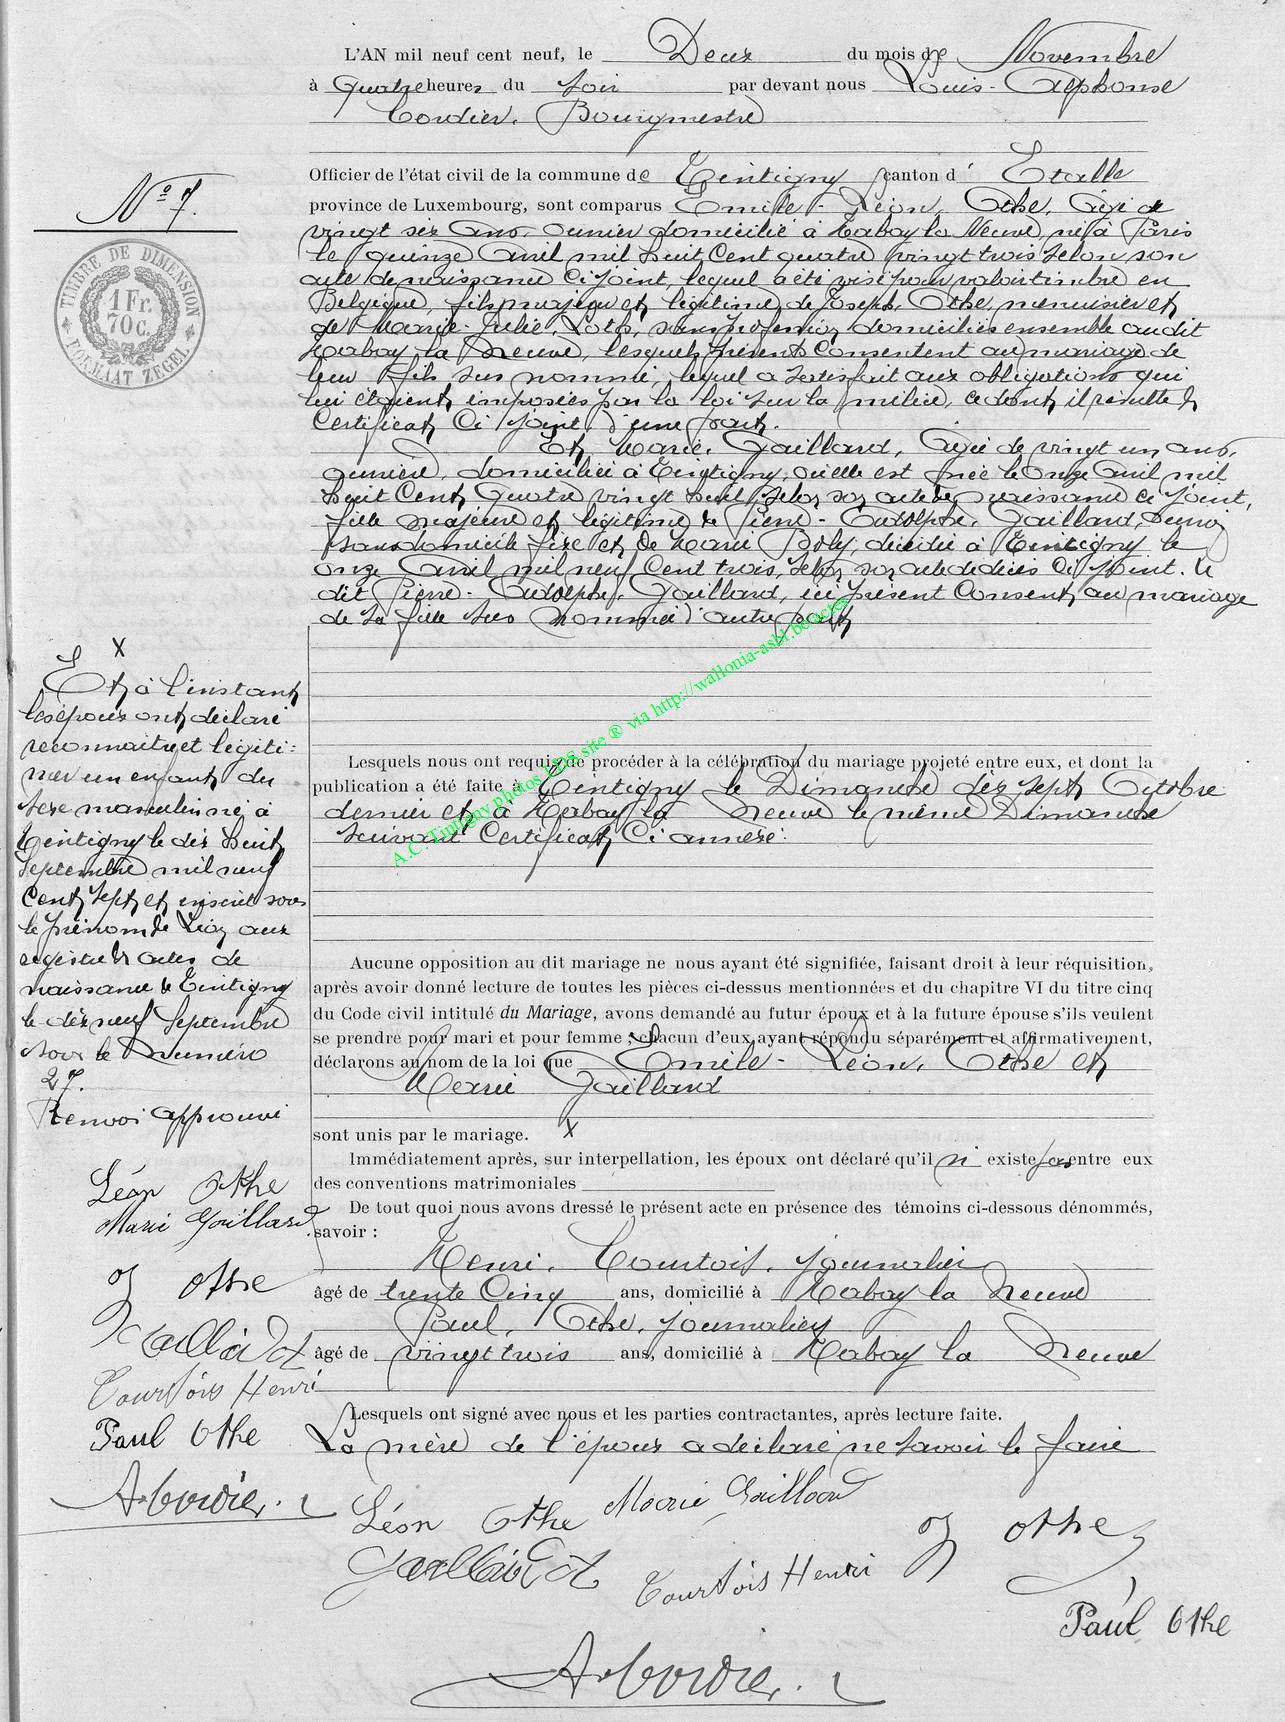 L'AN mil neuf cent neuf, le Deux du mois de Novembre
à quatre heures du soir par devant nous Louis-Alphonse
Cordier, Bourgmestre
Officier de l'état civil de la commune de Tintigny canton d'Etalle
province de Luxembourg, sont comparus Emile-Léon, Othe, âgé de
vingt six ans, ouvrier domicilié à Habay la Neuve, né à Paris
le quinze avril mil huit cent quatre vingt trois selon son
acte de naissance ci joint, lequel a été visé pour valoir timbre en
Belgique, fils majeur et légitime de Joseph, Othe, menuisier et
de Marie-Julie, sans profession domiciliés ensemble audit
Habay la Neuve, lesquels présents consentent au mariage de
leur fils sus nommé, lequel a satisfait aux obligations qui
lui étaient imposées par la loi sur la milice, ce dont il résulte du
certificat ci joint d'une part.
Et Marie, Gaillard, âgée de vingt un ans,
ouvrière, domiciliée à Tintigny, où elle est née le onze avril mil
huit cent quatre vingt huit selon son acte de naissance ci joint,
fille majeure et légitime de Pierre-Adolphe, Gaillard,
sans domicile fixe et de Marie décédée à Tintigny le
onze avril mil neuf cent trois, selon son acte de décès ci joint. Le
dit Pierre-Adolphe, Gaillard, ici présent consent au mariage
de sa fille sus nommée d'autre part
Lesquels nous ont requis de procéder à la célébration du mariage projeté entre eux, et dont la
publication a été faite à Tintigny le Dimanche dix sept Octobre
dernier et à Habay la Neuve le même Dimanche
suivant certificat ci annexé.
Aucune opposition au dit mariage ne nous ayant été signifiée, faisant droit à leur réquisition,
après avoir donné lecture de toutes les pièces ci-dessus mentionnées et du chapitre VI du titre cinq
du Code civil intitulé du Mariage, avons demandé au futur époux et à la future épouse s'ils veulent
se prendre pour mari et pour femme ; chacun d'eux ayant répondu séparément et affirmativement,
déclarons au nom de la loi que Emile-Léon, Othe et
Marie Gaillard
sont unis par le mariage. X
Immédiatement après, sur interpellation, les époux ont déclaré qu'il n'existe pas entre eux
des conventions matrimoniales
De tout quoi nous avons dressé le présent acte en présence des témoins ci-dessous dénommés,
savoir :
Henri, Courtois, journalier
âgé de trente cinq ans, domicilié à Habay la Neuve
Paul, Othe, journalier
âgé de vingt trois ans, domicilié à Habay la Neuve
Lesquels ont signé avec nous et les parties contractantes, après lecture faite.
La mère de l'époux a déclaré ne savoir le faire
Léon Othe Marie Gaillard
J Othe
Gaillard A
Courtois Henri
Paul Othe
A Cordier
No 7.
TIMBRE DE DIMENSION
1 Fr.
70 c.
FORMAAT ZEGEL
X
Et à l'instant
les époux ont déclaré
reconnaitre et légiti=
mer un enfant du
sexe masculin né à
Tintigny le dix huit
septembre mil neuf
cent sept et inscrit sous
le prénom de Léon aux
registre des actes de
naissance de Tintigny
le dix neuf septembre
sous le numéro
27.
Renvoi approuvé
Léon Othe
Marie Gaillard
J Othe
Gaillard A
Courtois Henri
Paul Othe
A Cordier
A.C. Tintigny photos LDE site ® via http://wallonia-asbl.be/actes